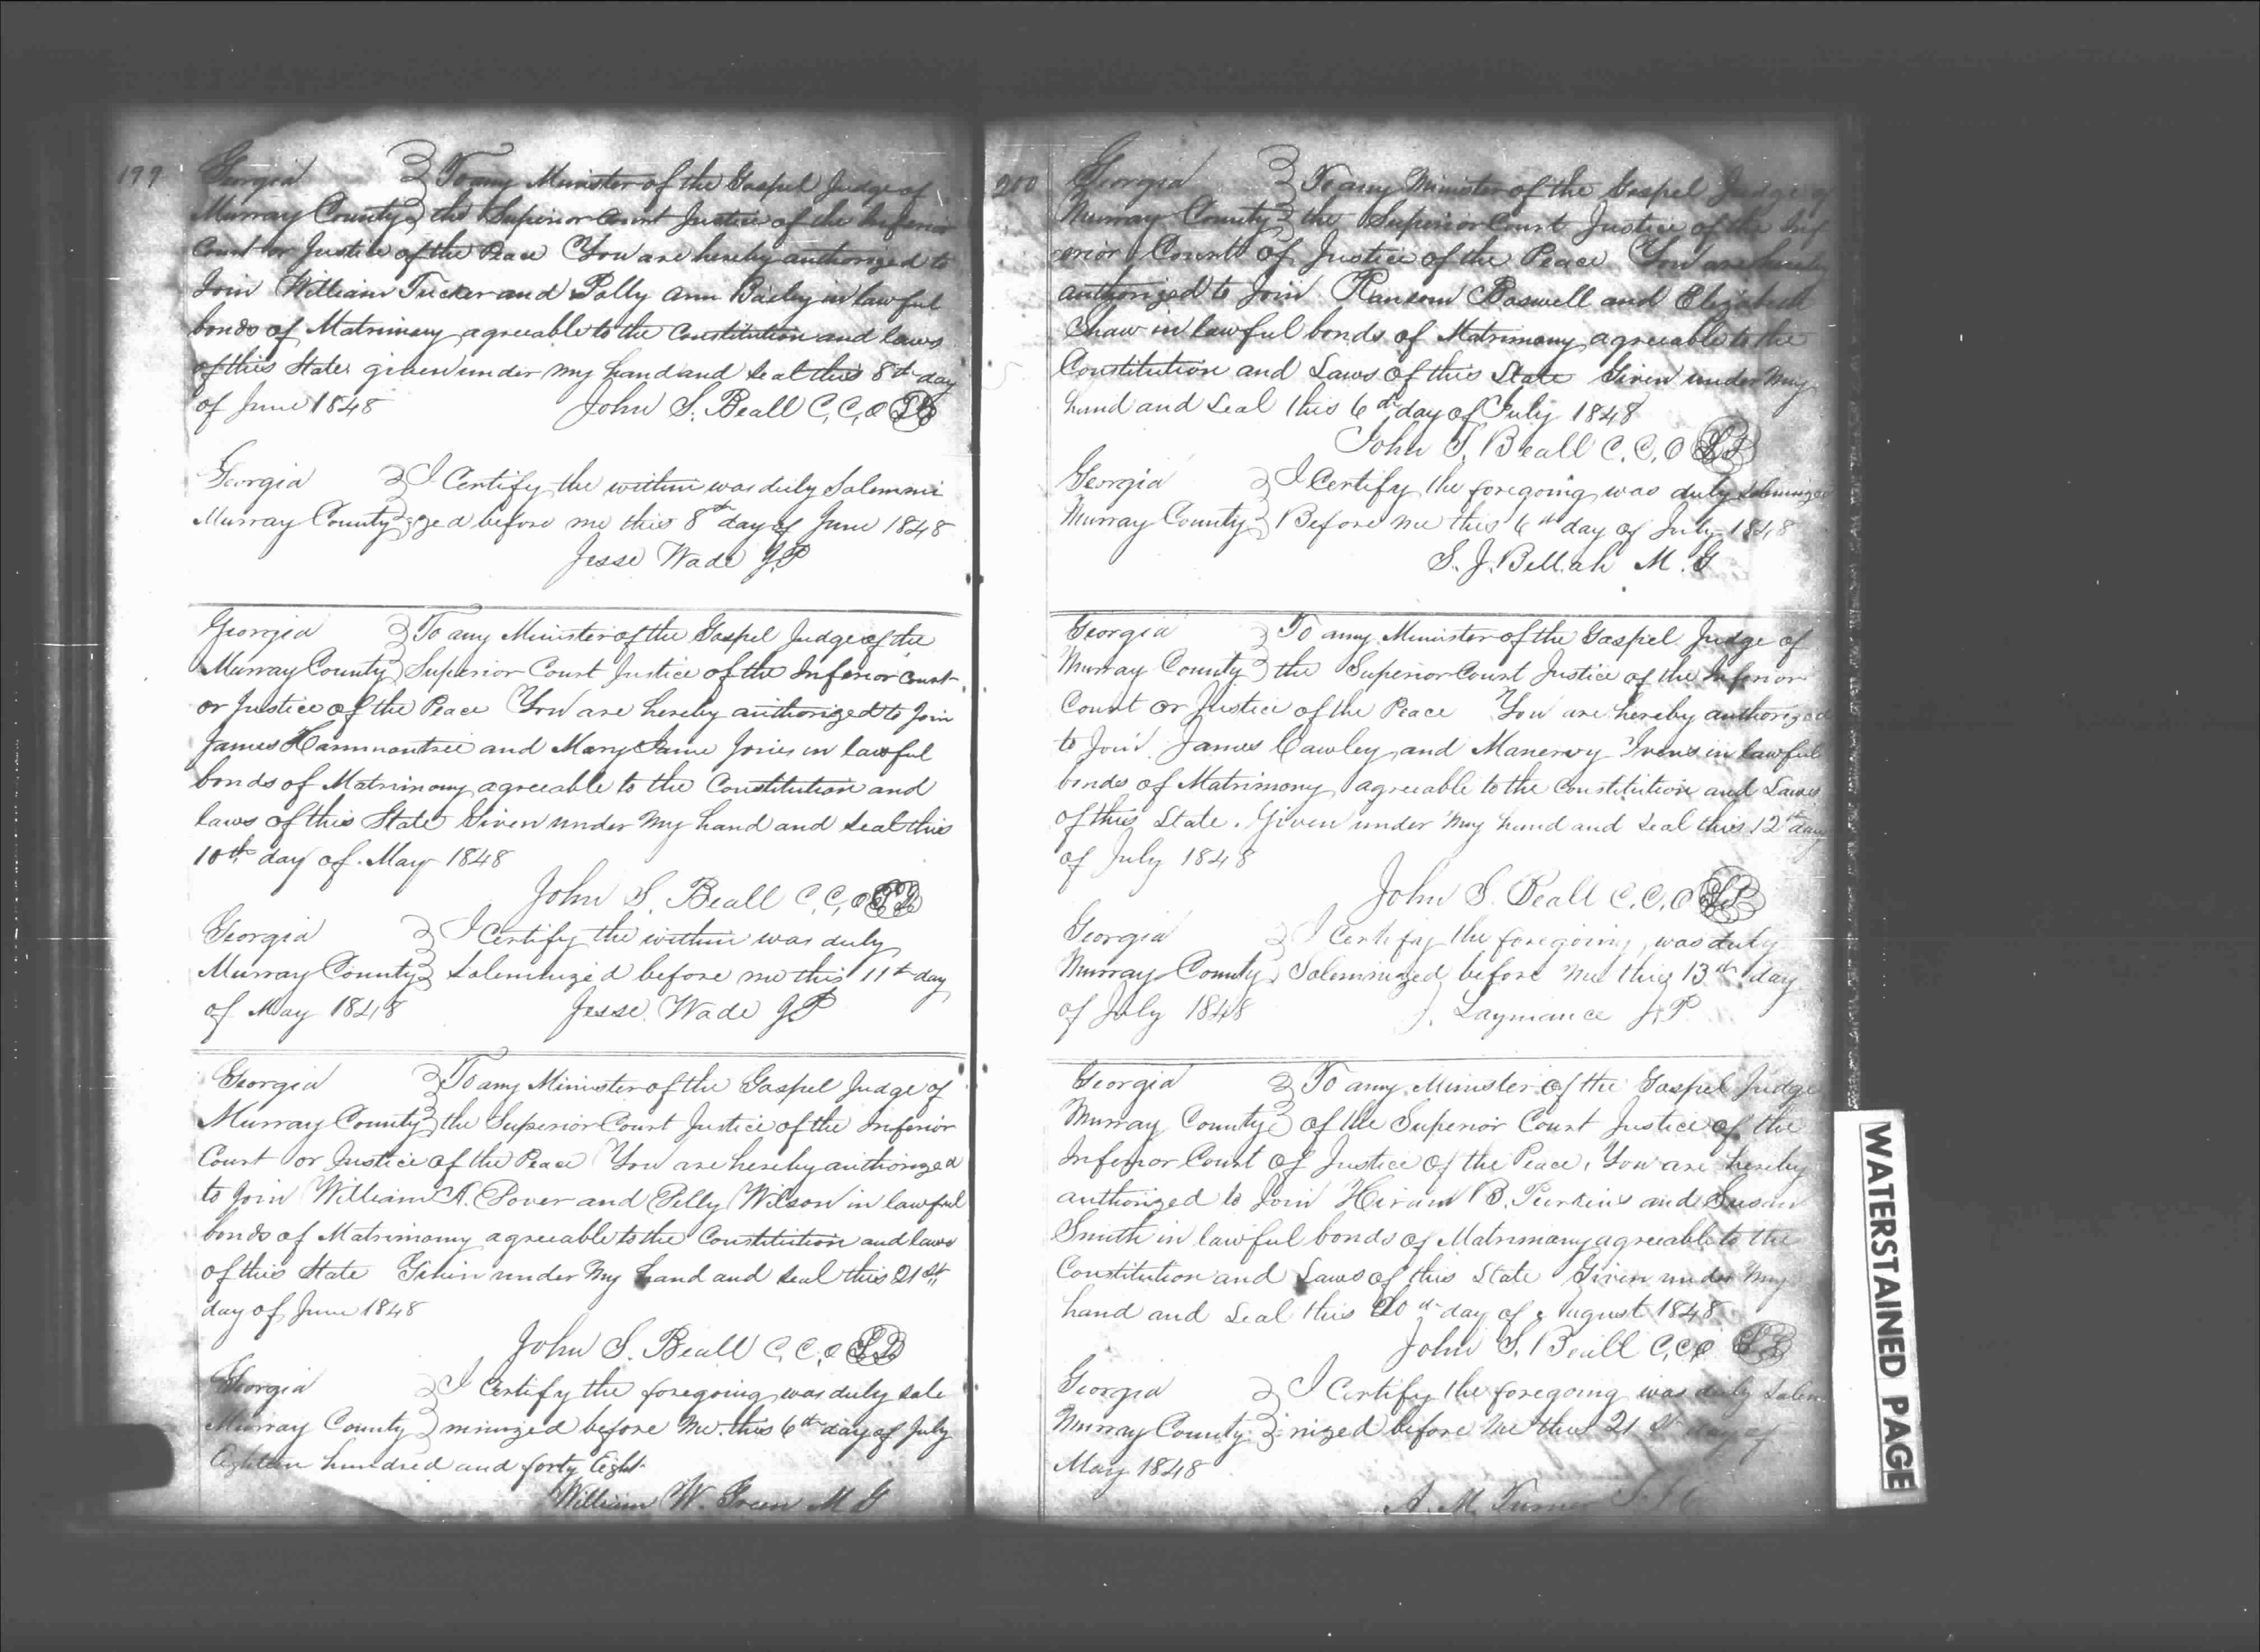 199
Georgia To any Minister of the Gospel Judge of
Murray County the Superior Court Justice of the Inferior
Court or Justice of the Peace You are hereby authorized to
Join William Tucker and Polly Ann Baily in lawful
bonds of Matrimony agreeable to the Constitution and laws
of this State given under my hand and seal this 8th day
of June 1848 John S. Beall C.C.O LS
Georgia I Certify the within was duly Solemni
Murray County zed before me this 8th day of June 1848
Jesse Wade J.P
Georgia To any Minister of the Gospel Judge of the
Murray County Superior Court Justice of the Inferior Court
or Justice of the Peace You are hereby authorized to Join
James Hammontree and Mary Jane Jones in lawful
bonds of Matrimony agreeable to the Constitution and
laws of this State Given under my hand and seal this
10th day of May 1848
John S. Beall C.C.O LS
Georgia I Certify the within was duly
Murray County Solemnized before me this 11th day
of May 1848 Jesse Wade JP
Georgia To any Minister of the Gospel Judge of
Murray County the Superior Court Justice of the Inferior
Court or Justice of the Peace You are hereby authorized
to Join William A. and Wilson in lawful
bonds of Matrimony agreeable to the Constitution and laws
of this State Given under My hand and seal this 21st
day of June 1848
John S. Beall C.C.O LS
Georgia I Certify the foregoing was duly sole
Murray County mnized before Me this 6th day of July
Eighteen hundred and forty Eight
William W. Green M G
200
Georgia To any Minister of the Gospel Judge of
Murray County the Superior Court Justice of the Inf
erior Court of Justice of the Peace You are hereby
authorized to Join Ransom Boswell and Elizabeth
Shaw in lawful bonds of Matrimony agreeable to the
Constitution and Laws of this State Given under my
hand and Seal this 6th day of July 1848
John S. Beall C.C.O LS
Georgia I Certify the foregoing was duly Solemnized
Murray County Before me this 6th day of July 1848
S. J. Bellah M.G
Georgia To any Minister of the Gospel Judge of
Murray County the Superior Court Justice of the Inferior
Court or Justice of the Peace You are hereby authorized
to Join James Cawley and Manervy in lawful
bonds of Matrimony agreeable to the Constitution and Laws
of this State. Given under my hand and seal this 12th day
of July 1848
John S. Beall C.C.O LS
Georgia I Certify the foregoing was duly
Murray County Solemnized before me this 13th day
of July 1848 J. Laymance J.P
Georgia To any Minister of the Gospel Judge
Murray County of the Superior Court Justice of the
Inferior Court of Justice of the Peace, You are hereby
authorized to Join Hiram B. Perkins and Susan
Smith in lawful bonds of Matrimony agreeable to the
Constitution and Laws of this State Given under my
hand and seal this 20th day of August 1848
John S. Beall C.C.O LS
Georgia I Certify the foregoing was duly Solem
Murray County nized before me this 21st day of
May 1848
A. M. Turner
WATERSTAINED PAGE